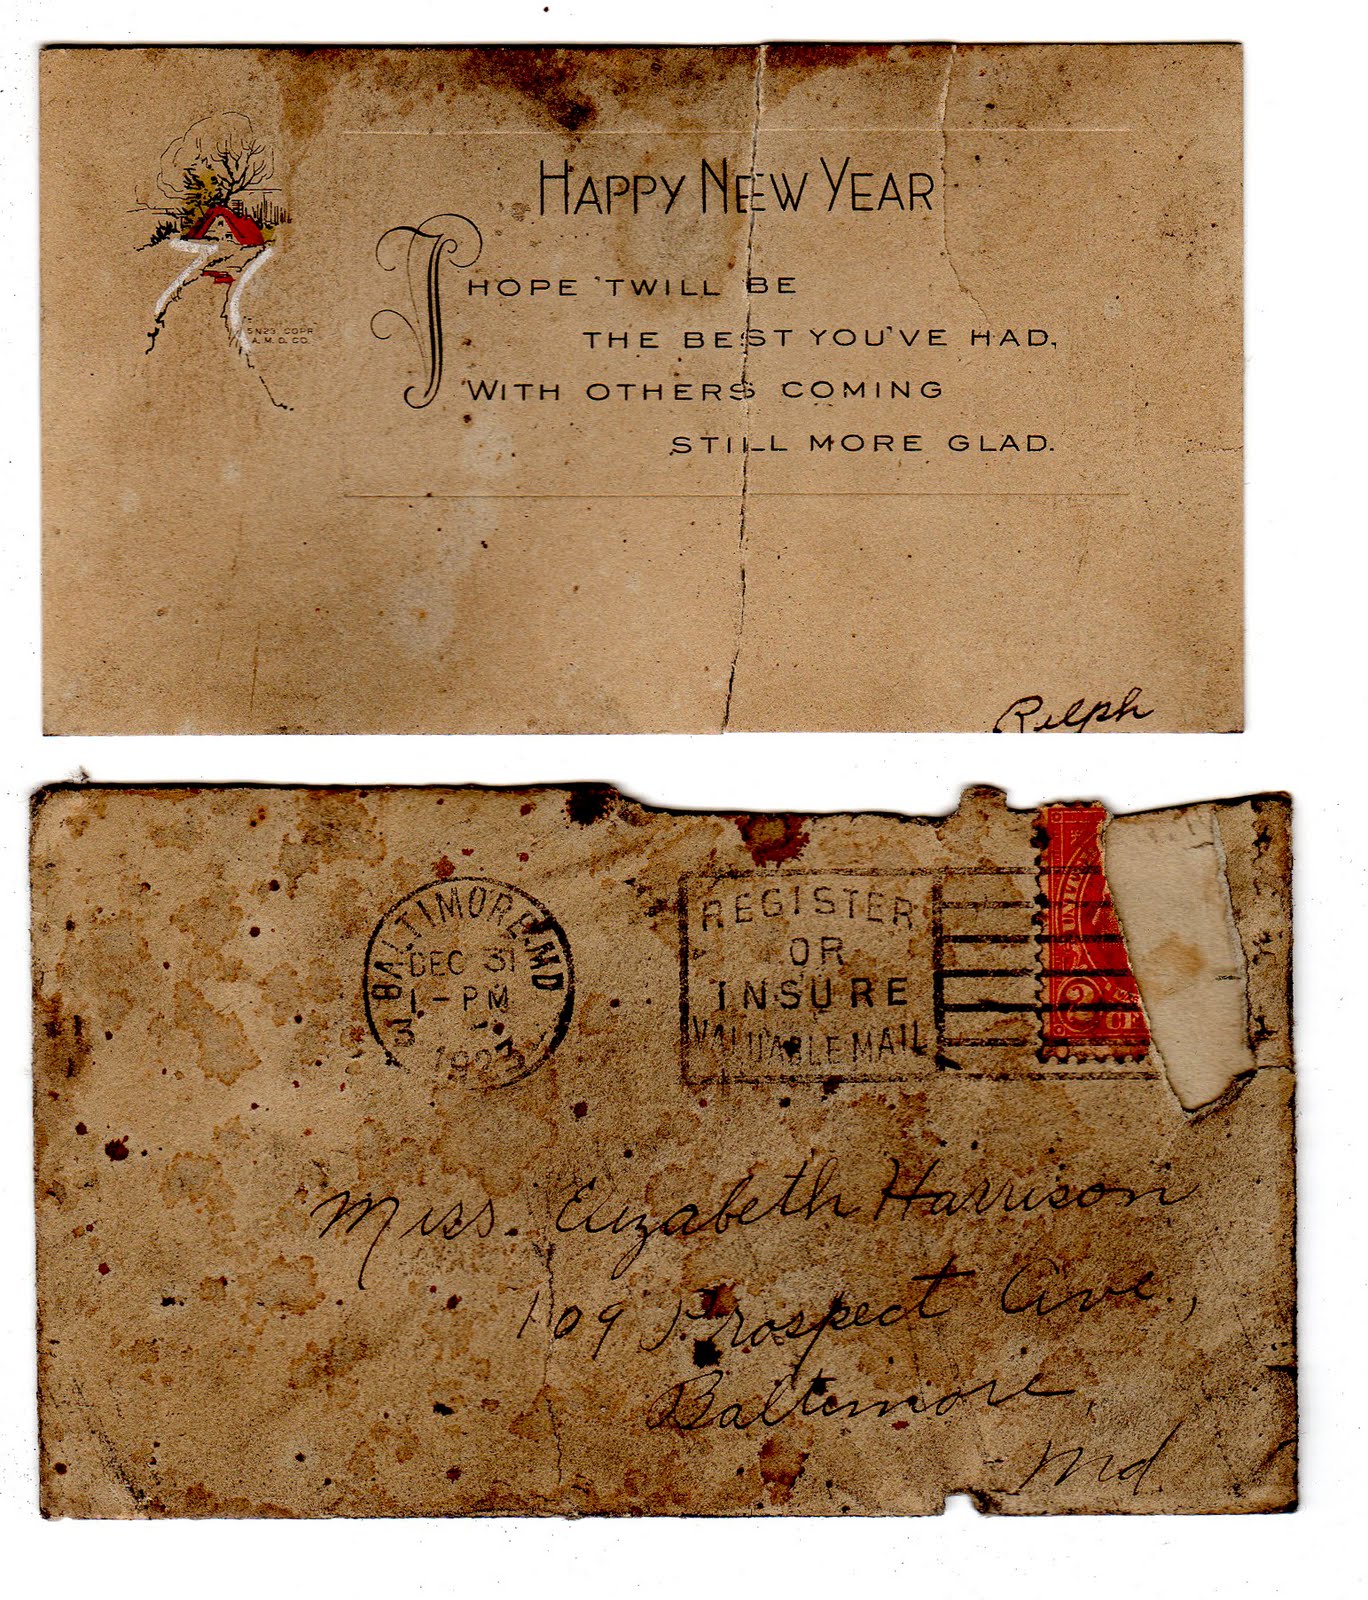 HAPPY NEW YEAR
I HOPE 'TWILL BE
THE BEST YOU'VE HAD,
WITH OTHERS COMING
STILL MORE GLAD.
SN23 COPR
A.M.D. CO.
Ralph
BALTIMORE, MD
DEC 31
1-PM
1923
REGISTER
OR
INSURE
VALUABLE MAIL
UNIT
2
CE
Miss. Elizabeth Harrison
109 Prospect Ave.,
Baltimore,
Md.